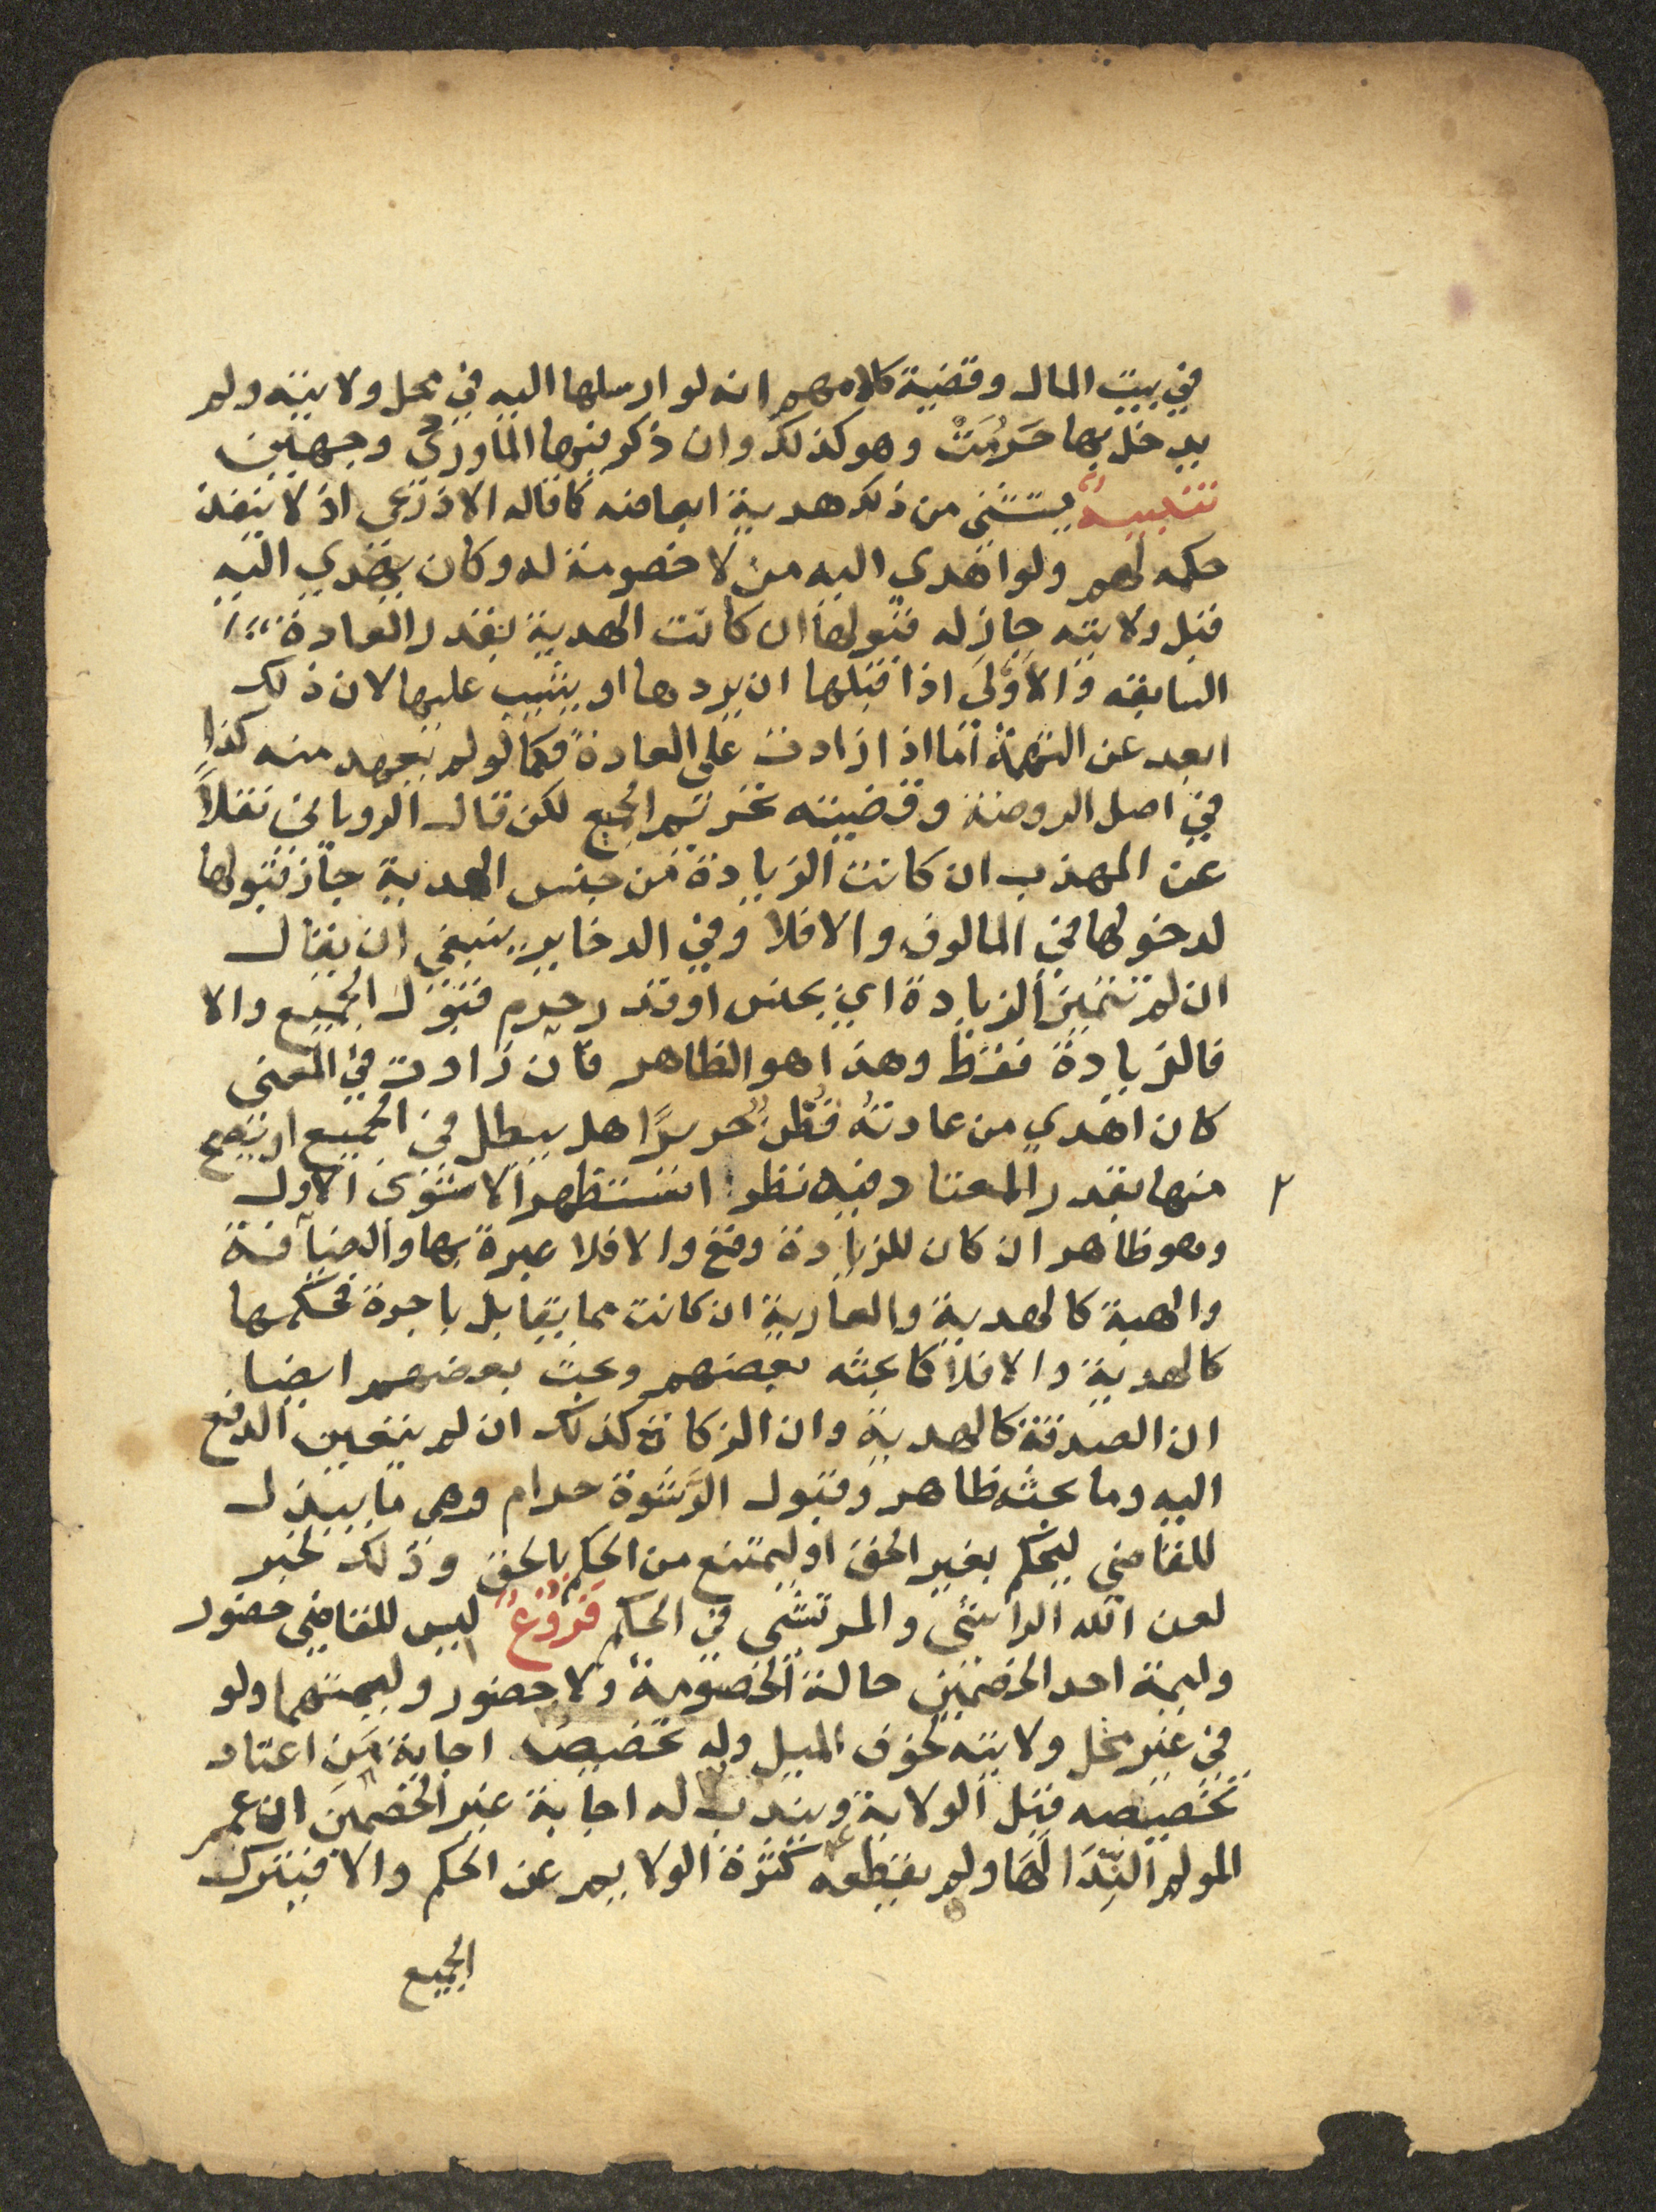 في بيت المال وقضية كلامهم انه لو ارسلها اليه في محل ولايته ولم
يدخل بها حَرُمَتْ وهو كذلك وان ذكر فيها الماوردي وجهين
تنبيه يستثنى من ذلك هدية ابعاضه كما قاله الاذرعي اذ لا ينفذ
حكمه لهم ولو اهدي اليه من لا خصومة له وكان يهدي اليه
قبل ولايته جاز له قبولها ان كانت الهدية بقدر العادة
السابقه والأَوْلَى اذا قبلها ان يردها او يثيب عليها لان ذلك
ابعد عن التهمة اما اذا زادت على العادة فكما لو لم تعهد منه كذا
في اصل الروضة وقضيته تحريم الجميع لكن قال الروياني نقلاً
عن المهذب ان كانت الزيادة من جنس الهدية جاز قبولها
لدخولها في المالوف والا فلا وفي الدخاير ينبغي ان يقال
ان لم تتميز الزيادة اي بجنس او قدر حرم قبول الجميع والا
فالزيادة فقط وهذا هو الظاهر فان زادت في المعنى
كان اهدي من عادته قُطْن حريرًا هل يبطل في الجميع او يصح
منها بقدر المعتاد فيه نظر استظهر الاسنوى الاول
وهو ظاهر ان كان للزيادة وقع والا فلا عبرة بها والضيافة
والهبة كالهدية والعارية ان كانت مما يقابل باجرة فحكمها
كالهدية والا فلا كما بحثه بعضهم وبحث بعضهم ايضا
ان الصدقة كالهدية وان الزكاة كذلك ان لم يتعين الدفع
اليه وما بحثه ظاهر وقبول الرَّشوة حرام وهي ما يبذل
للقاضي ليحكم بغير الحق او ليمتنع من الحكم بالحق وذلك لخبر
لعن الله الراشي والمرتشى في الحكم فروع ليس للقاضي حضور
وليمة احد الخصمين حالة الخصومة ولا حضور وليمتهما ولو
في غير محل ولايته لخوف الميل وله تخصيص اجابة من اعتاد
تخصيصه قبل الولاية ويندب له اجابة غير الخصمين ان عمم
المولم النِّدَا لها ولم يقطعه كثرة الولايم عن الحكم والا فيترك
الجميع